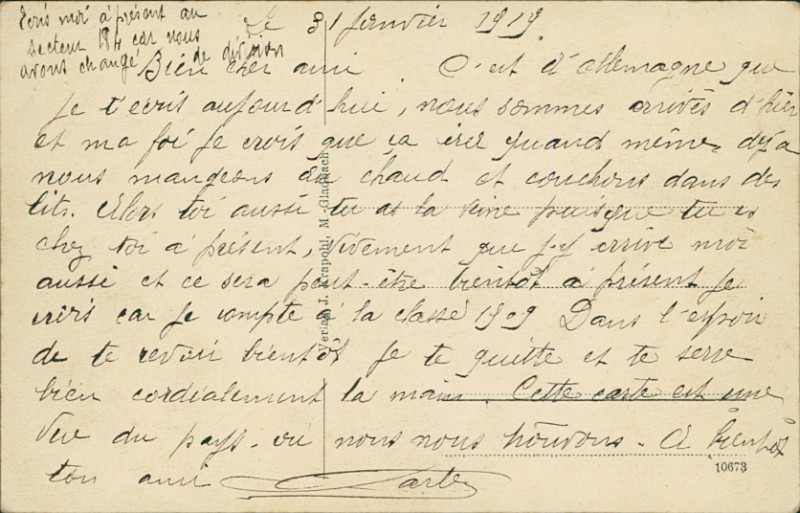 Ecris moi à présent au
secteur 184 car nous
avons changé de division
Le 31 janvier 1919.
Bien cher ami. C'est d'allemagne que
je t'ecris aujourd'hui, nous sommes arrivés d'hier
et ma foi je crois que ça irer quand même, déja
nous mangeons du chaud et couchons dans des
lits. Alors toi aussi tu as la veine puisque tu es
chez toi à présent, Vivement que j-y arrive moi
aussi et ce sera peut-être bientôt à présent je
crois car je compte à la classe 1909 Dans l'espoir
de te revoir bientôt je te quitte et te serre
bien cordialement la main. Cette carte est une
vue du pays où nous nous trouvons. A bientôt
ton ami
Verlag J. Krapohl, M.-Gladbach
10673